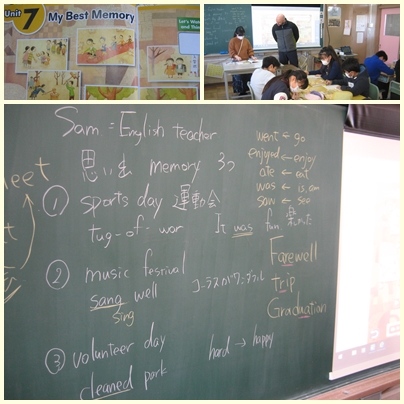 Unit 7 My Best Memory
Let's Wa
and Thi
Sam = English teacher
思い出 memory 3つ
① sports day 運動会
tug-of-war
It was fun 楽しかった
② music fesrival
sang well
sing
③ volunteer day
cleaned park
hard → happy
went ← go
enjoyed ← enjoy
ate ← eat
was ← is, am
saw ← see
Farewell
trip
Graduation
eet